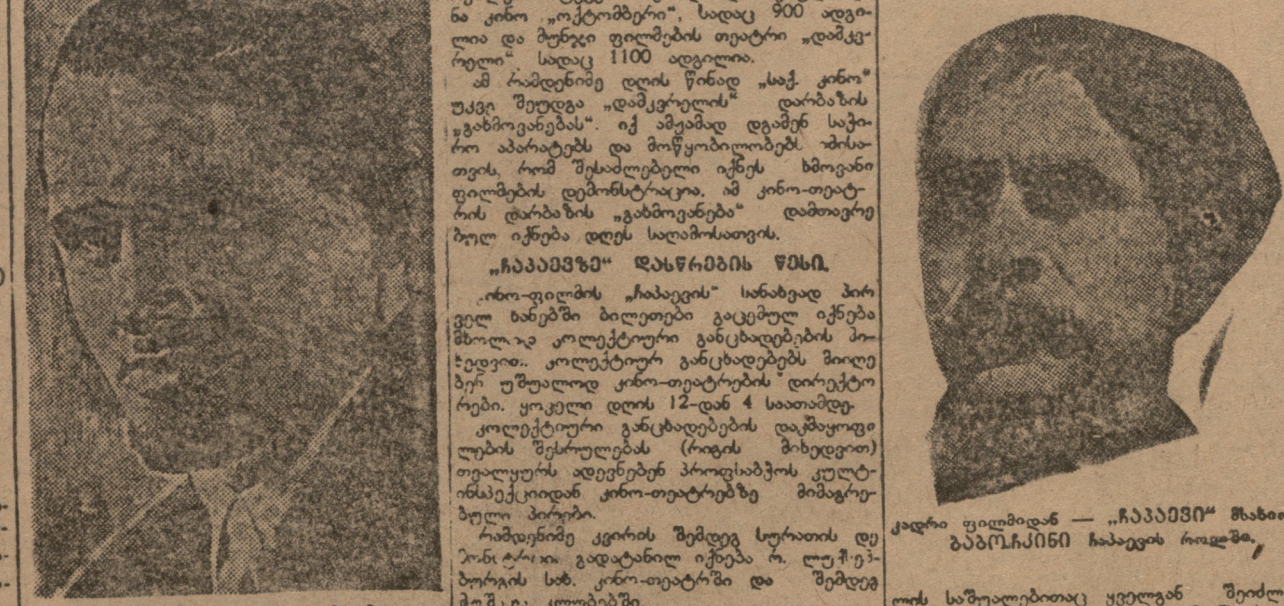 ნა კინო „ოქტომბერი“, სადაც 900 ადგი-
ლია და მუნჯი ფილმების თეატრი „დამკვ-
რელი“ სადაც 1100 ადგილია.
ამ რამდენიმე დღის წინად „საქ. კინო“
უკვე შეუდგა „დამკვრელის“ დარბაზის
„გახმოვანებას“. იქ ამჟამად დგამენ საჭი-
რო აპარატებს და მოწყობილობებს იმისა-
თვის, რომ შესაძლებელი იქნეს ხმოვანი
ფილმების დემონსტრაცია. ამ კინო-თეატ-
რის დარბაზის „გახმოვანება“ დამთავრე
ბულ იქნება დღეს საღამოსათვის.
„ჩაპაევზე“ დასწრების წესი.
ინო-ფილმის „ჩაპაევის“ სანახავად პირ
ველ ხანებში ბილეთები გაცემულ იქნება
მხოლოდ კოლექტიური განცხადებების მი-
ხედვით. კოლექტიურ განცხადებებს მიიღე
ბენ უშუალოდ კინო-თეატრების დირექტო
რები. ყოველი დღის 12-დან 4 საათამდე.
კოლექტიური განცხადებების დაკმაყოფი
ლების შესრულებას (რიგის მიხედვით)
თვალყურს ადევნებენ პროფსაბჭოს კულტ-
ინსპექციიდან კინო-თეატრებზე მიმაგრე-
ბული პირები.
რამდენიმე კვირის შემდეგ სურათის დე
გადატანილ იქნება რ. ლუქსემ-
ბურგის სახ. კინო-თეატრში და შემდეგ
კლუბებში.
კადრი ფილმიდან — „ჩაპაევი“ მსახიო
ბაბოჩკინი ჩაპაევის როლში.
ლის საშუალებითაც ყველგან შეიძლ